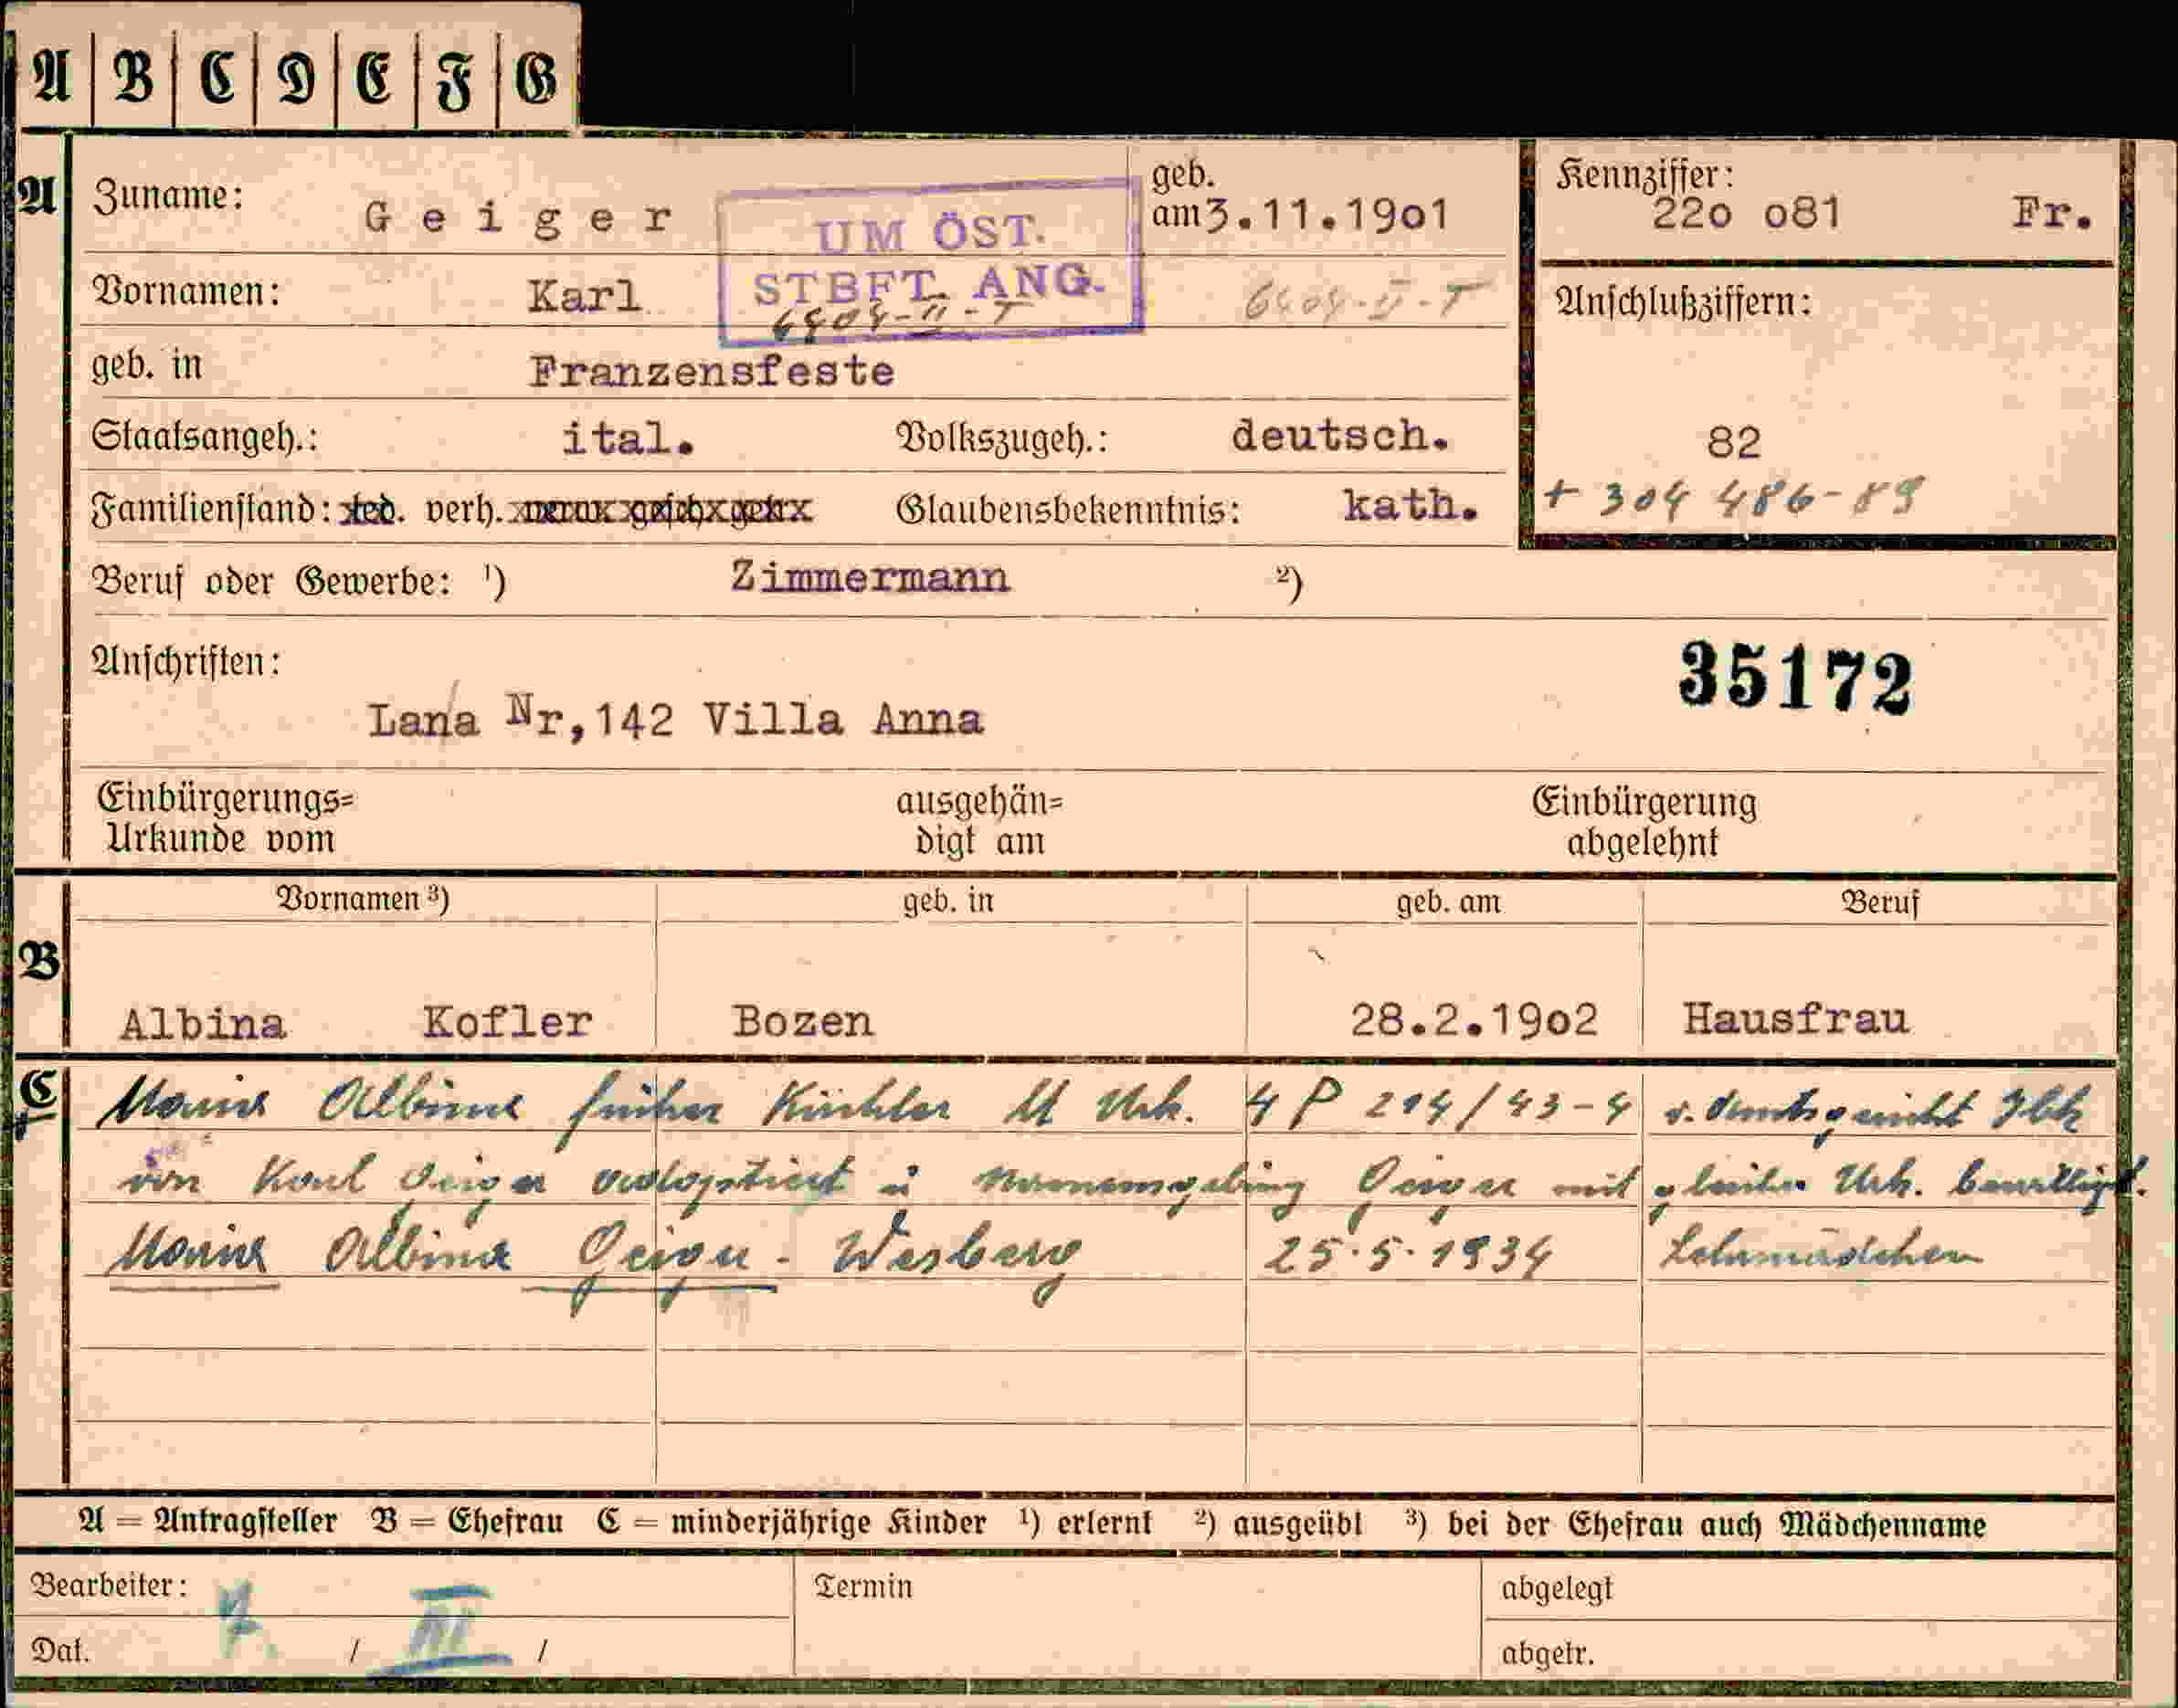 A B C D E F G
A Zuname: Geiger
UM ÖST.
STBFT. ANG.
6404-II-T
geb. am 3.11.19o1
Kennziffer: 22o o81 Fr.
Vornamen: Karl
6404-II-T
Anschlußziffern:
geb. in Franzensfeste
Staatsangeh.: ital. Volkszugeh.: deutsch.
82
Familienstand: led. verh. verw. gesch. getr. Glaubensbekenntnis: kath.
+ 304 486-89
Beruf oder Gewerbe: ¹) Zimmermann ²)
Anschriften:
35172
Lana Nr,142 Villa Anna
Einbürgerungs= ausgehän= Einbürgerung
Urkunde vom digt am abgelehnt
Vornamen ³) geb. in geb. am Beruf
B
Albina Kofler Bozen 28.2.19o2 Hausfrau
C Maria Albina früher lt Urk. 4 P 214/43-4 v. Amtsgericht
von Karl Geiger adoptiert u Namensgebung Geiger mit gleicher Urk. bewilligt.
Maria Albina Geiger - 25.5.1934
A = Antragsteller B = Ehefrau C = minderjährige Kinder ¹) erlernt ²) ausgeübt ³) bei der Ehefrau auch Mädchenname
Bearbeiter: Termin abgelegt
Dat. / III / abgetr.